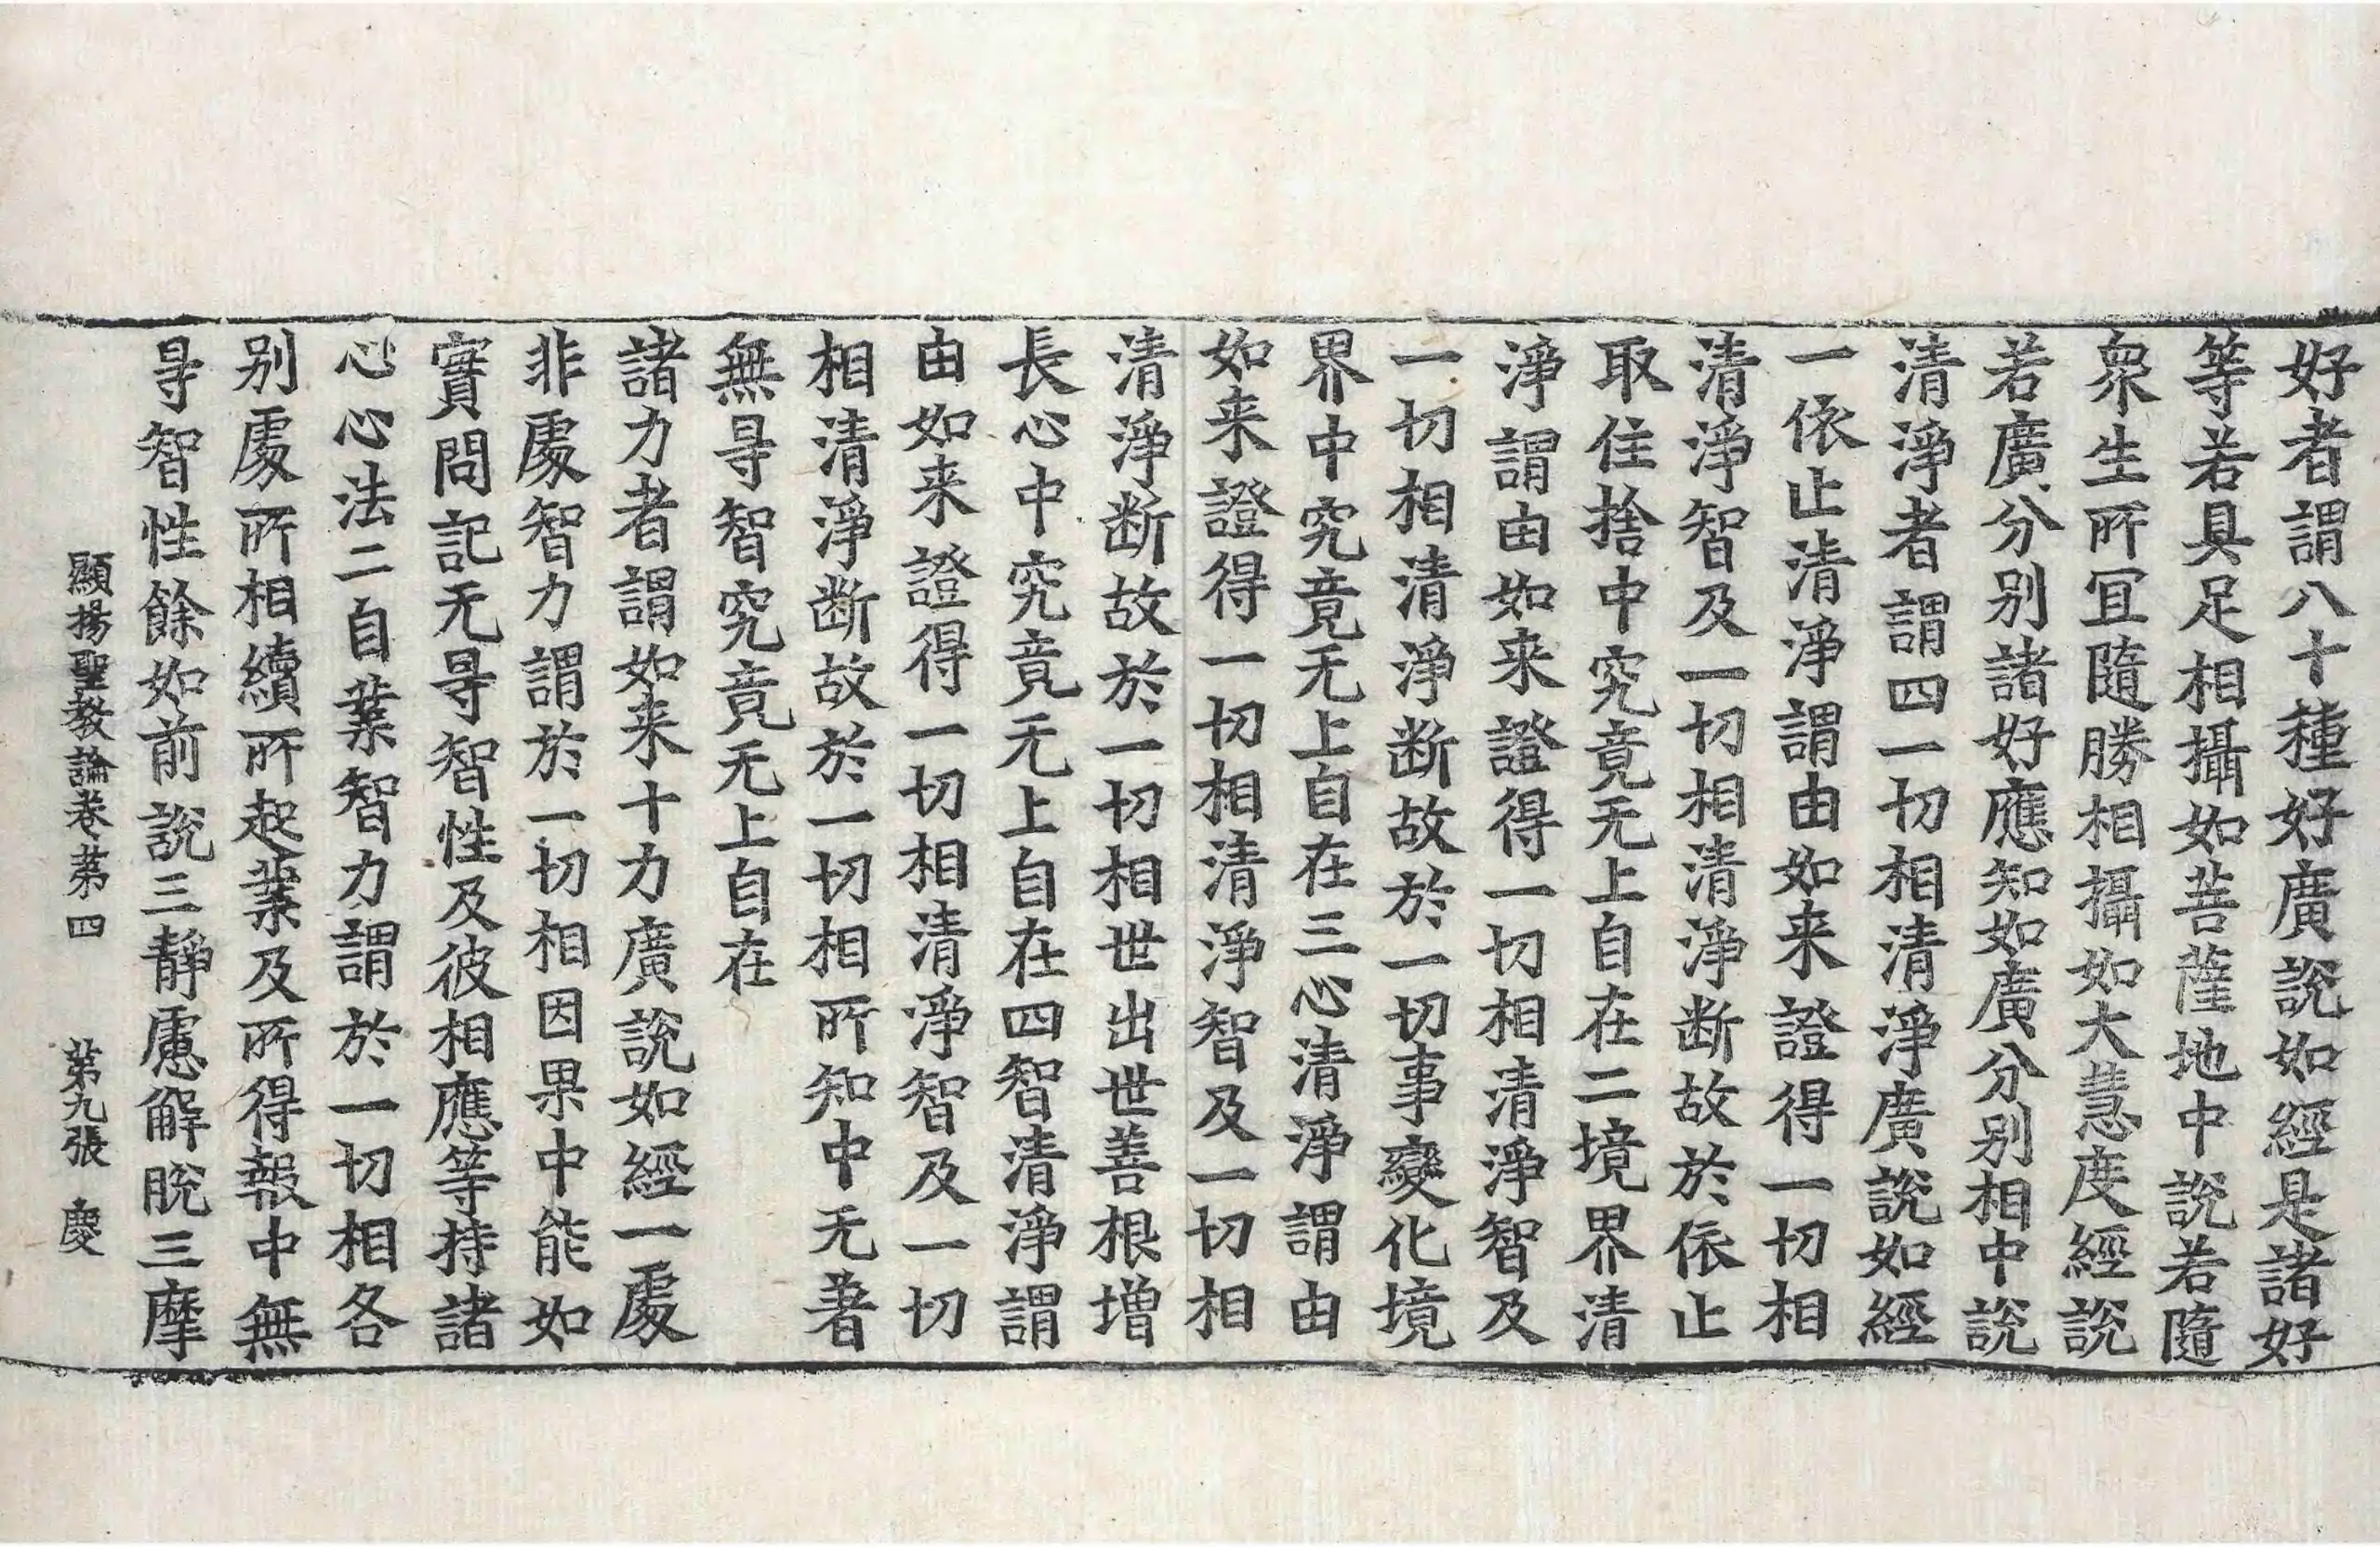 好者謂八十種好廣說如經是諸好
等若具足相攝如菩薩地中說若隨
衆生所冝隨勝相攝如大慧度經說
若廣分別諸好應知如廣分別相中說
清淨者謂四一切相清淨廣說如經
一依止清淨謂由如来證得一切相
清淨智及一切相清淨断故於依止
取住捨中究竟无上自在二境界清
淨謂由如来證得一切相清淨智及
一切相清淨断故於一切事變化境
界中究竟无上自在三心清淨謂由
如来證得一切相清淨智及一切相
清淨断故於一切相世出世善根增
長心中究竟无上自在四智清淨謂
由如来證得一切相清淨智及一切
相清淨断故於一切相所知中无著
無㝵智究竟无上自在
諸力者謂如来十力廣說如經一處
非處智力謂於一切相因果中能如
實問記无㝵智性及彼相應等持諸
心心法二自業智力謂於一切相各
別處所相續所起業及所得報中無
㝵智性餘如前說三靜慮解脫三摩
顯揚聖教論卷第四 第九張 慶